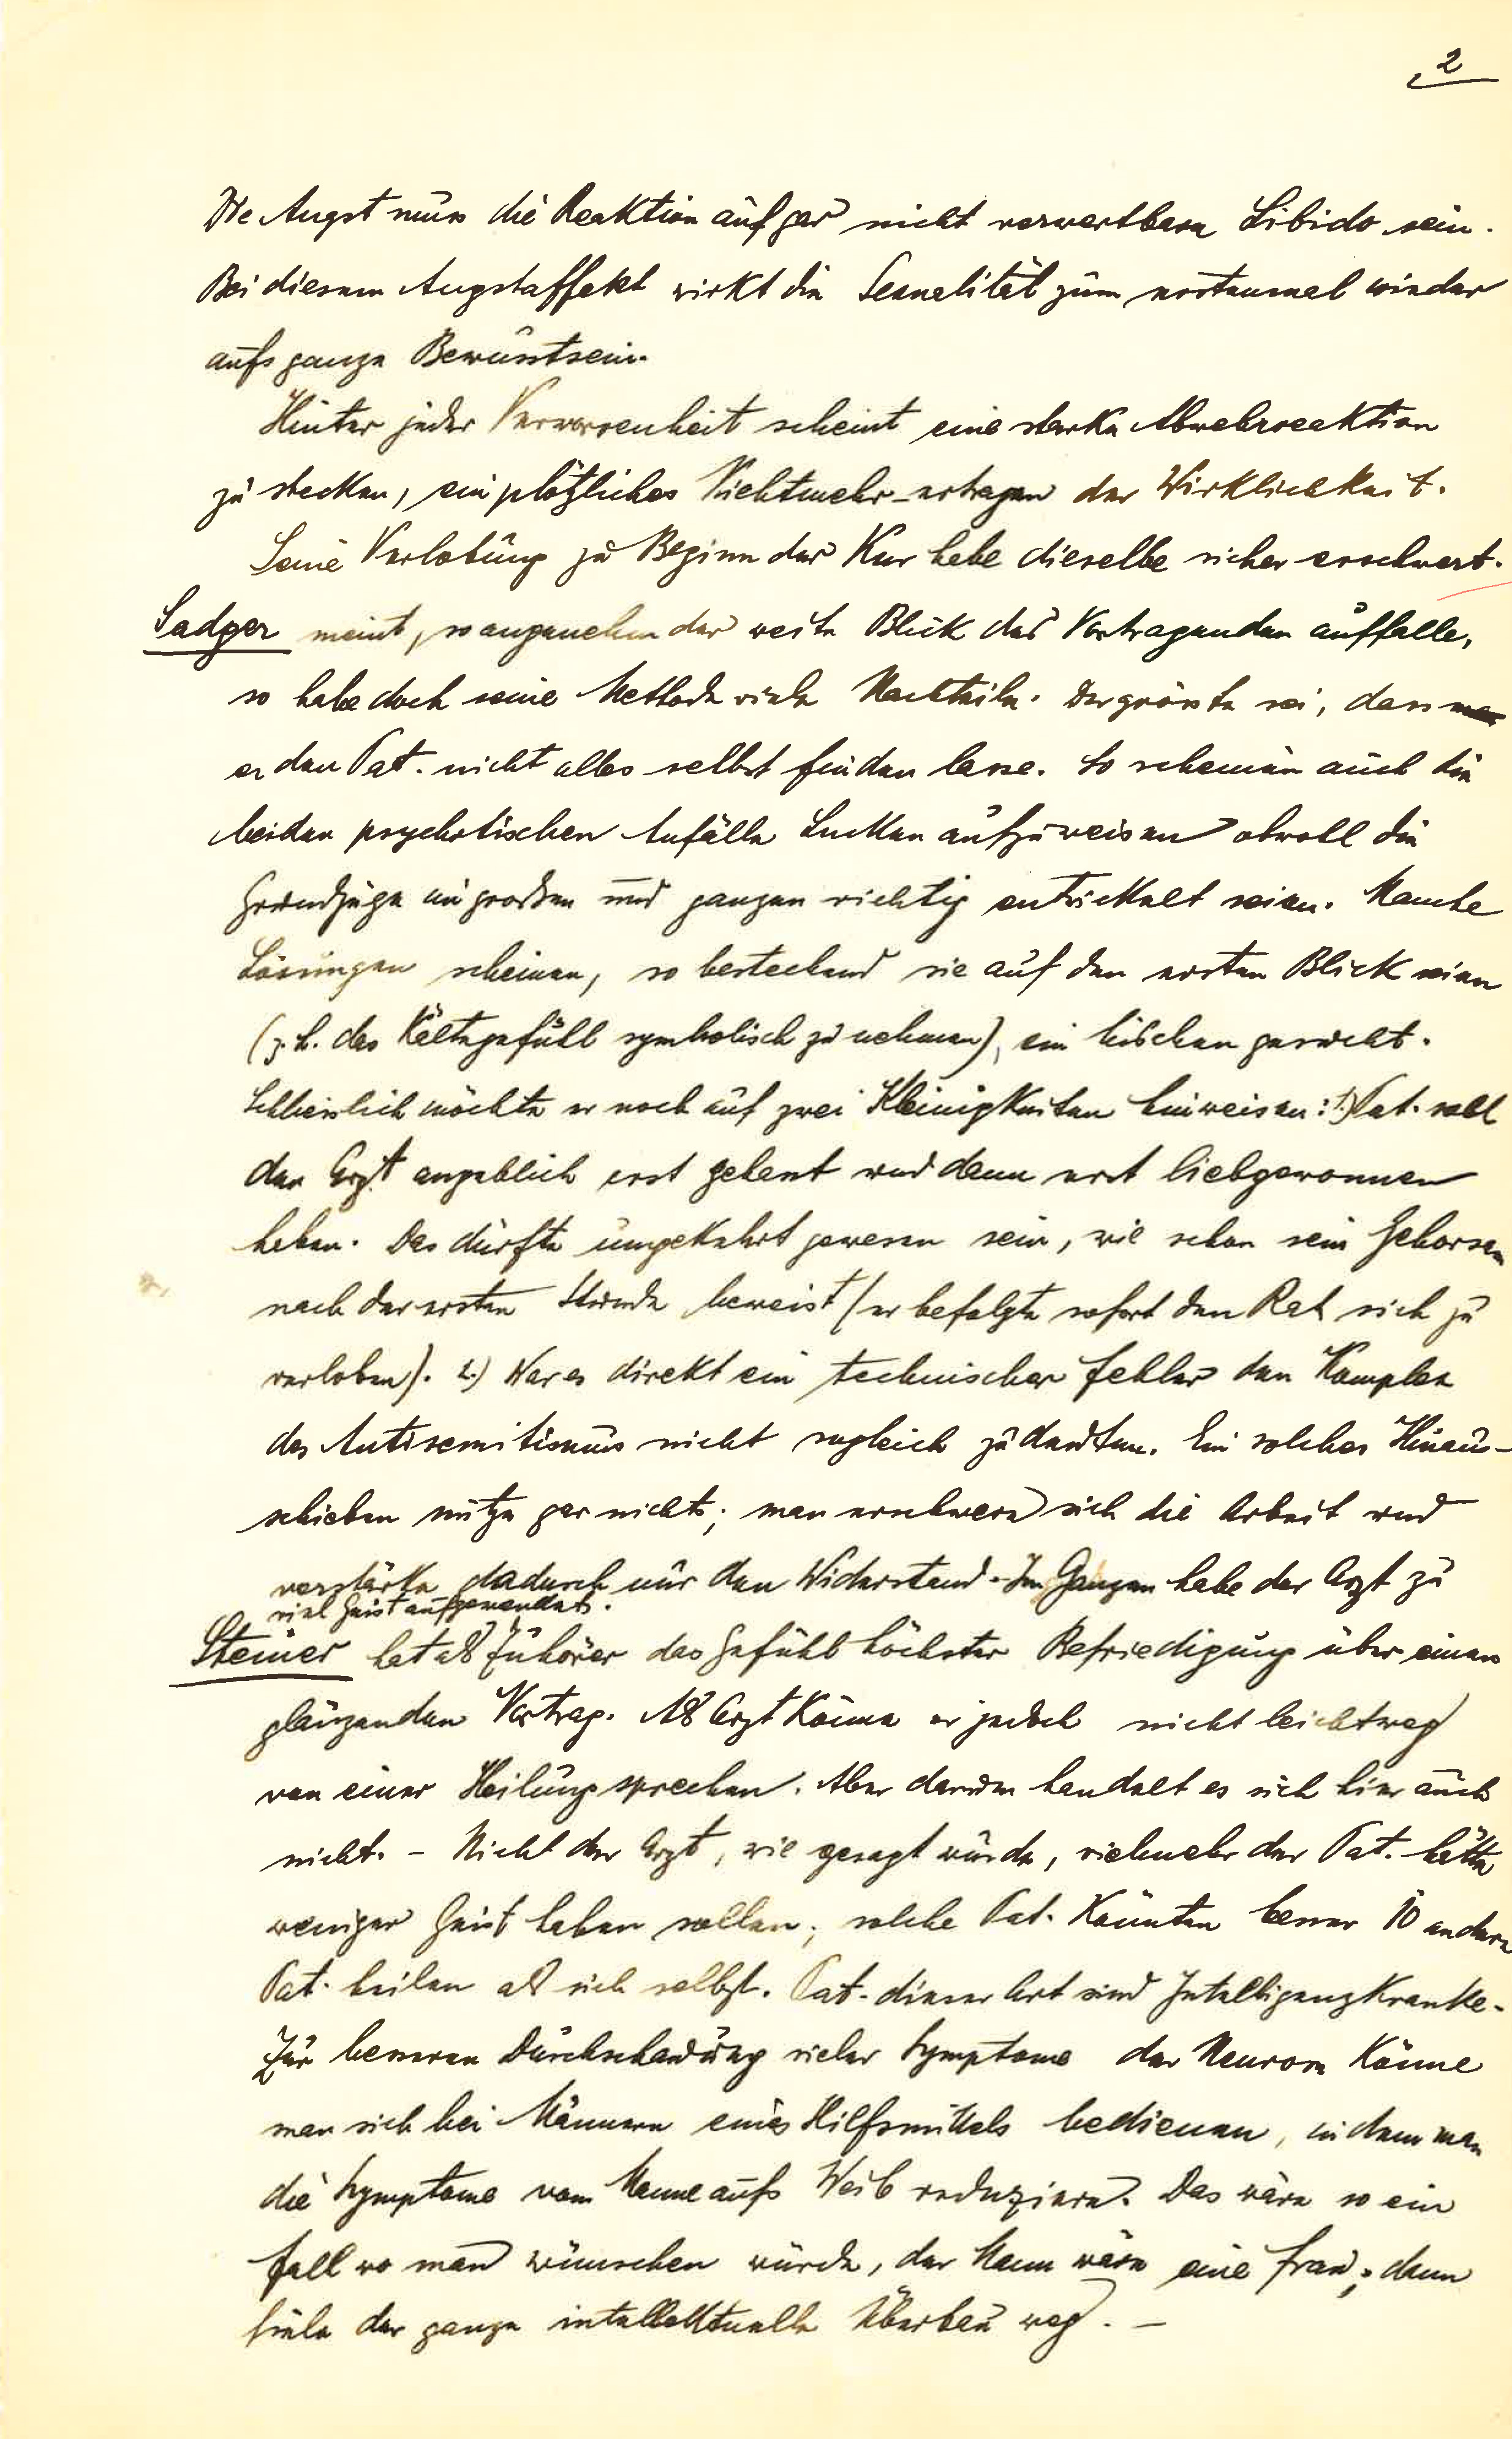 2
Die Angst muss die Reaktion auf gar nicht verwertbare Libido sein.
Bei diesem Angstaffekt wirkt die Sexualität zum erstenmal wieder
aufs ganze Bewusstsein.
Hinter jeder Verworrenheit scheint eine starke Abwehrreaktion
zu stecken, ein plötzliches Nichtmehr-ertragen der Wirklichkeit.
Seine Verlobung zu Beginn der Kur habe dieselbe sicher erschwert.
Sadger meint, so angenehm der weite Blick des Vortragenden auffalle,
so habe doch seine Methode viele Nachteile. Der grösste sei, dass
er den Pat. nicht alles selbst finden lasse. So scheinen auch die
beiden psychotischen Anfälle Lücken aufzuweisen obwohl die
Grundzüge im grossen und ganzen richtig entwickelt seien. Manche
Lösungen scheinen, so bestechend sie auf den ersten Blick seien
(z. b. das Kältegefühl symbolisch zu nehmen), ein bischen gesucht.
Schliesslich möchte er noch auf zwei Kleinigkeiten hinweisen: 1.) Pat. soll
den Arzt angeblich erst gehasst und dann erst liebgewonnen
haben. Das dürfte umgekehrt gewesen sein, wie schon sein Gehorsam
nach der ersten Stunde beweist (er befolgte sofort den Rat sich zu
verloben). 2.) War es direkt ein technischer Fehler den Komplex
des Antisemitismus nicht sogleich zu deuten. Ein solches Hinaus-
schieben nütze gar nichts; man erschwere sich die Arbeit und
verstärke dadurch nur den Widerstand. Im Ganzen habe der Arzt zu
viel Geist aufgewendet.
Steiner hat als Zuhörer das Gefühl höchster Befriedigung über einen
glänzenden Vortrag. Als Arzt könne er jedoch nicht leichtweg
von einer Heilung sprechen. Aber darum handelt es sich hier auch
nicht. - Nicht der Arzt, wie gesagt wurde, vielmehr der Pat. hätte
weniger Geist haben sollen; solche Pat. könnten besser 10 andere
Pat. heilen als sich selbst. Pat. dieser Art sind Intelligenzkranke.
Zur besseren Durchschauung vieler Symptome der Neurose könne
man sich bei Männern eines Hilfsmittels bedienen, indem man
die Symptome vom Manne aufs Weib reduziere. Das wäre so ein
Fall wo man wünschen würde, der Mann wäre eine Frau; dann
fiele der ganze intellektuelle Überbau weg. -